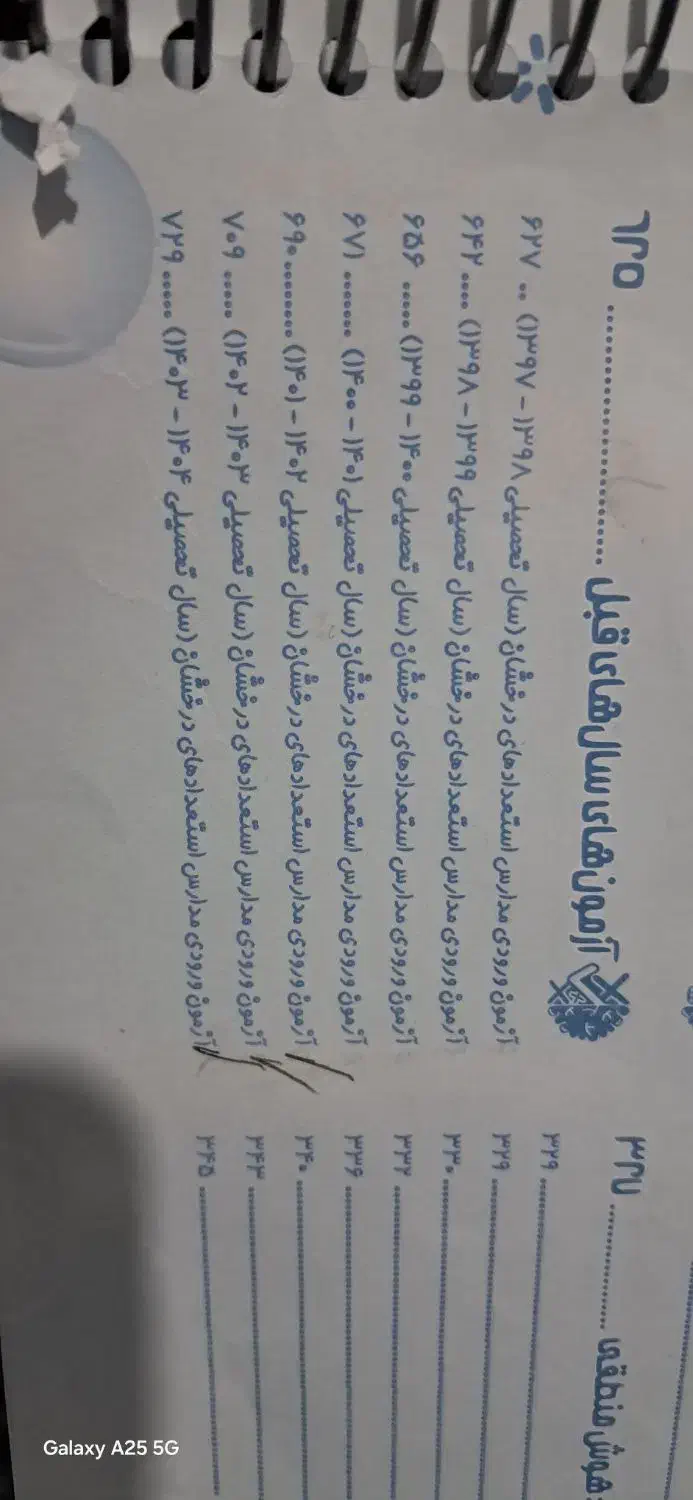 آزمون‌های سال‌های قبل ........ ۶۲۵
آزمون ورودی مدارس استعدادهای درخشان (سال تحصیلی ۱۳۹۸ - ۱۳۹۷) .. ۶۲۷
آزمون ورودی مدارس استعدادهای درخشان (سال تحصیلی ۱۳۹۹ - ۱۳۹۸) .... ۶۴۲
آزمون ورودی مدارس استعدادهای درخشان (سال تحصیلی ۱۴۰۰ - ۱۳۹۹) ..... ۶۵۶
آزمون ورودی مدارس استعدادهای درخشان (سال تحصیلی ۱۴۰۱ - ۱۴۰۰) ....... ۶۷۱
آزمون ورودی مدارس استعدادهای درخشان (سال تحصیلی ۱۴۰۲ - ۱۴۰۱) ......... ۶۹۰
آزمون ورودی مدارس استعدادهای درخشان (سال تحصیلی ۱۴۰۳ - ۱۴۰۲) ..... ۷۰۹
آزمون ورودی مدارس استعدادهای درخشان (سال تحصیلی ۱۴۰۴ - ۱۴۰۳) ..... ۷۲۹
هوش منطقی ........ ۳۲۷
........ ۳۲۹
........ ۳۲۹
........ ۳۳۰
........ ۳۳۲
........ ۳۳۶
........ ۳۴۰
........ ۳۴۳
........ ۳۴۵
Galaxy A25 5G